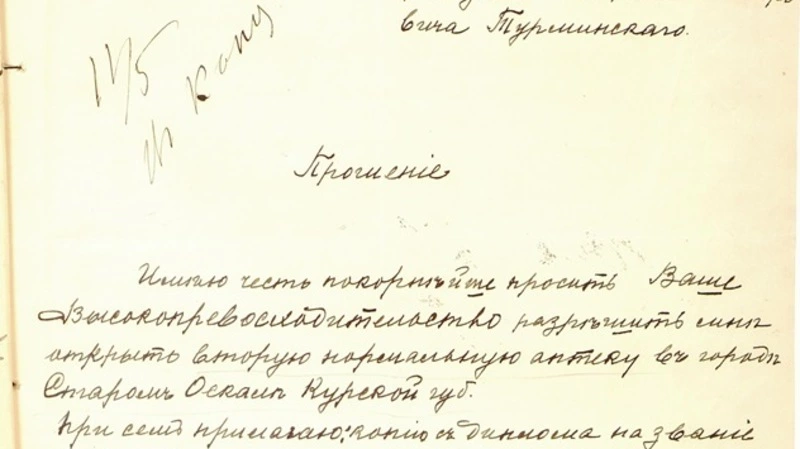 вича Турминскаго.
115
Прошеніе
Имѣю честь покорнѣйше просить Ваше
Высокопревосходительство разрѣшить мнѣ
открыть вторую нормальную аптеку въ городѣ
Старомъ Осколѣ Курской губ.
При семъ прилагаю: копію съ диплома на званіе